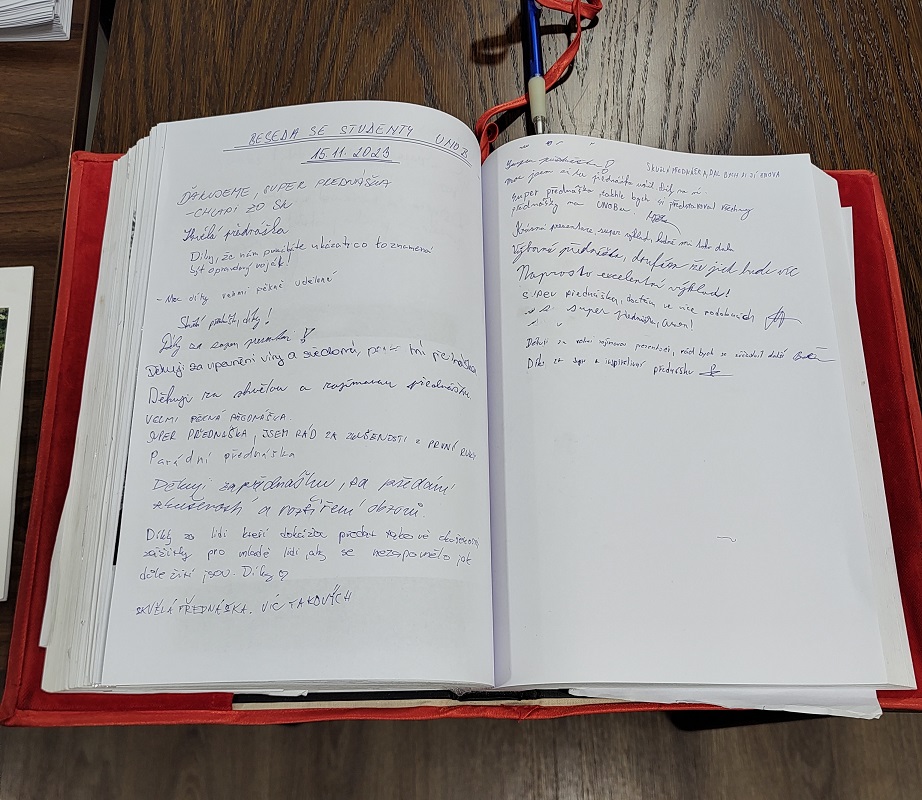 BESEDA SE STUDENTY UNOB
15.11.2023
ĎAKUJEME, SUPER PREDNÁŠKA
-CHLAPI ZO SK
Skvělá přednáška
Díky, že nám ukázat co to znamená
být opravdový voják!
- Moc díky velmi pěkně udělané
Skvělá díky!
Díky za
Děkuji za upevnění víry a
Děkuji za skvělou a zajímavou přednášku
VELMI PĚKNÁ PŘEDNÁŠKA.
SUPER PŘEDNÁŠKA, JSEM RÁD ZA ZKUŠENOSTI Z PRVNÍ RUKY
Parádní přednáška
Děkuji za přednášku, za předání
zkušeností a rozšíření obzorů
Díky za lidi kteří dokážou předat takové
zážitky pro mladé lidi, aby se nezapomnělo jak
důležití jsou. Díky ♡
SKVĚLÁ PŘEDNÁŠKA. VÍC TAKOVÝCH
Super přednáška!
SKVĚLÁ PŘEDNÁŠKA, DAL BYCH SI JI ZNOVA
moc jsem si tu přednášku užil, díky
Super přednáška, takhle bych si představoval všechny
přednášky na UNOBu
Krásná prezentace super výklad,
Výborná přednáška, doufám že jich bude víc
Naprosto excelentní výklad!
SUPER přednáška, doufám ve více podobných
super přednáška,
Děkuji za velmi zajímavou prezentaci, rád bych se zúčastnil další
Díky za super a inspirativní přednášku